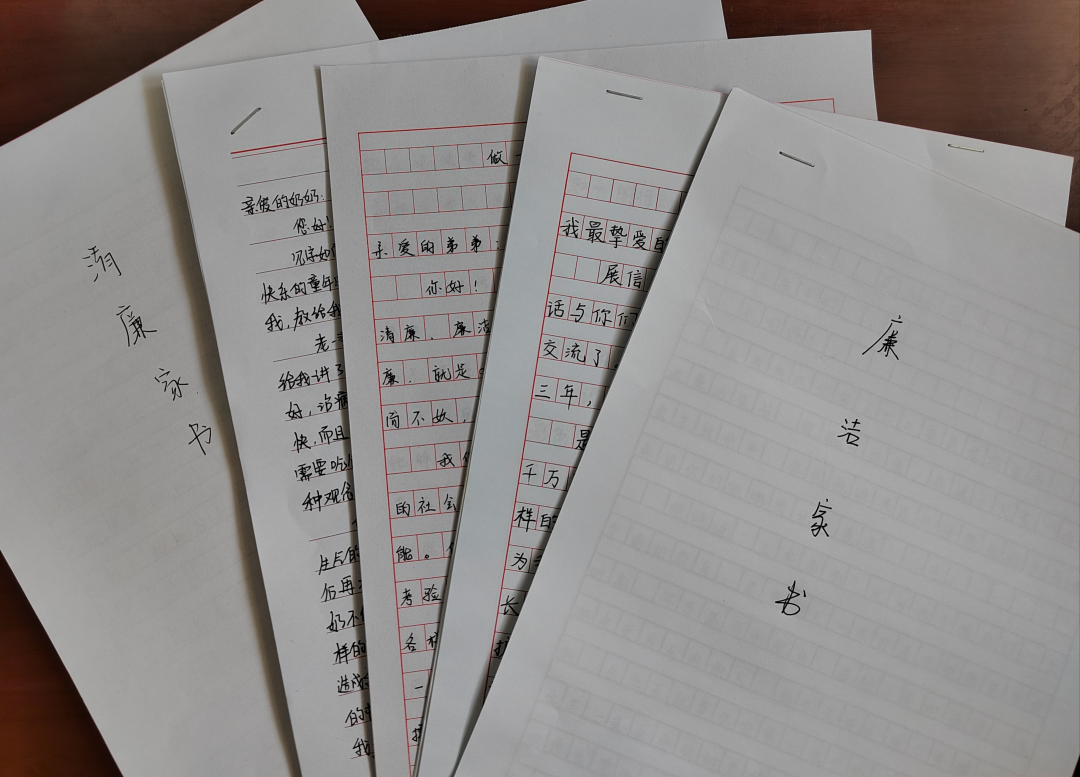 清廉家书
亲爱的奶奶:
您好!
见字如
快乐的童年
我,教给我
老一
给我讲了
好,治病
快,而且
需要吃
种观念
生气的
后再
奶不
样的
造成
的
我
做一
亲爱的弟弟:
你好!
清廉,廉洁
廉,就是
简不奴,
我们
的社会
能。
考验
各样
一
我最挚爱的
展信
话与你们
交流了
三年,
是
千万
样的
为
长
廉洁家书